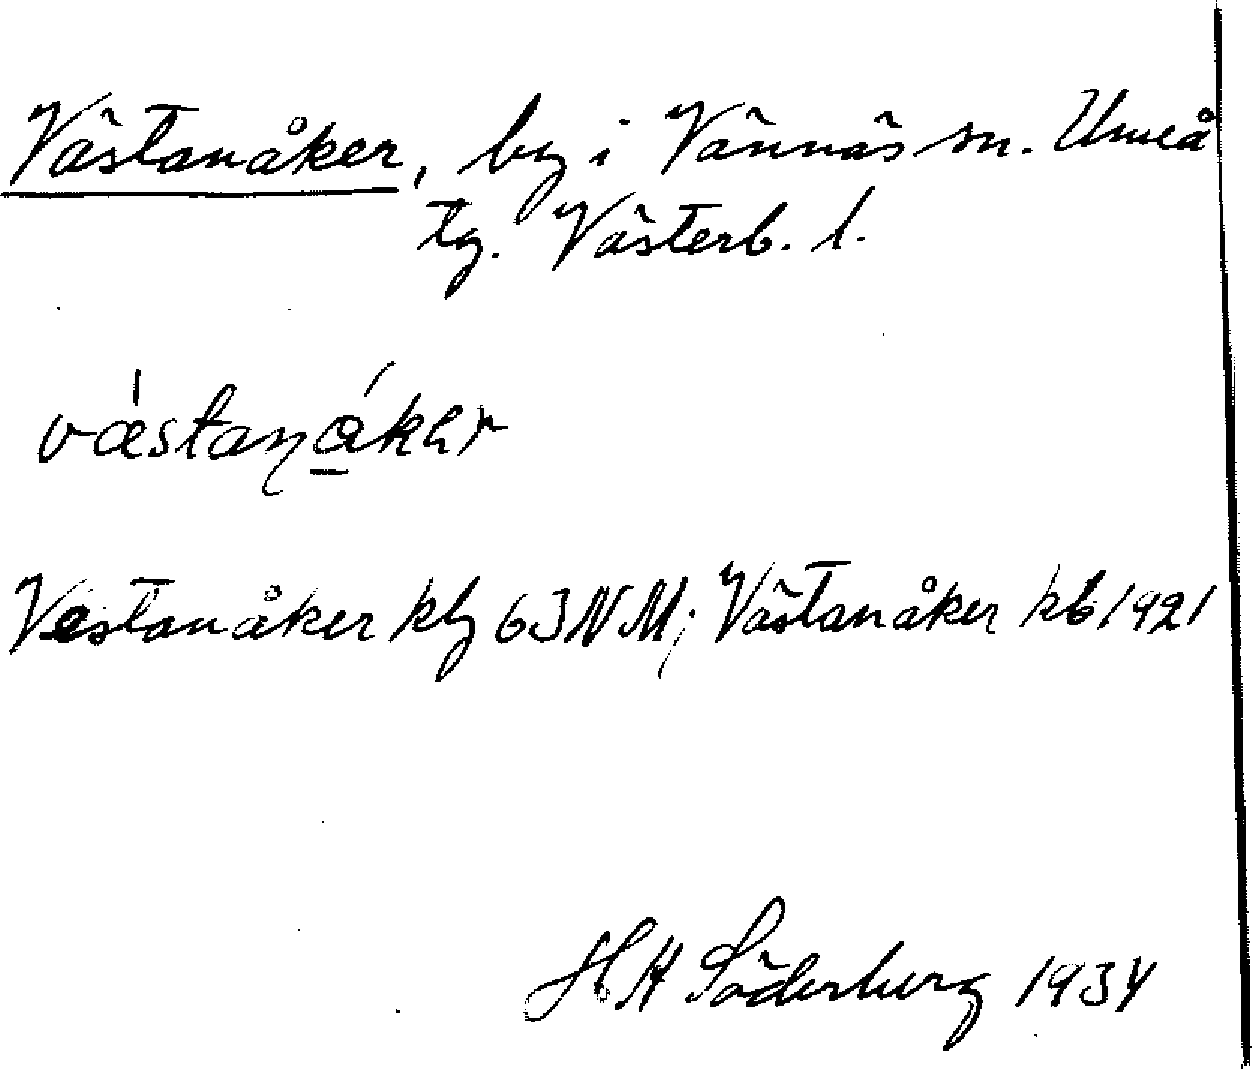 Västanåker, by i Vännäs sn. Umeå
tg. Västerb. l.
västanåker
Vestanåker kbg 63 NM; Västanåker kb 1921
H A Söderberg 1934